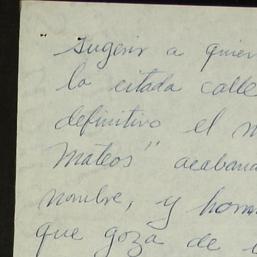 sugerir a quien
la citada calle
definitivo el
Mateos" acaban
nombre, y hom
que goza de